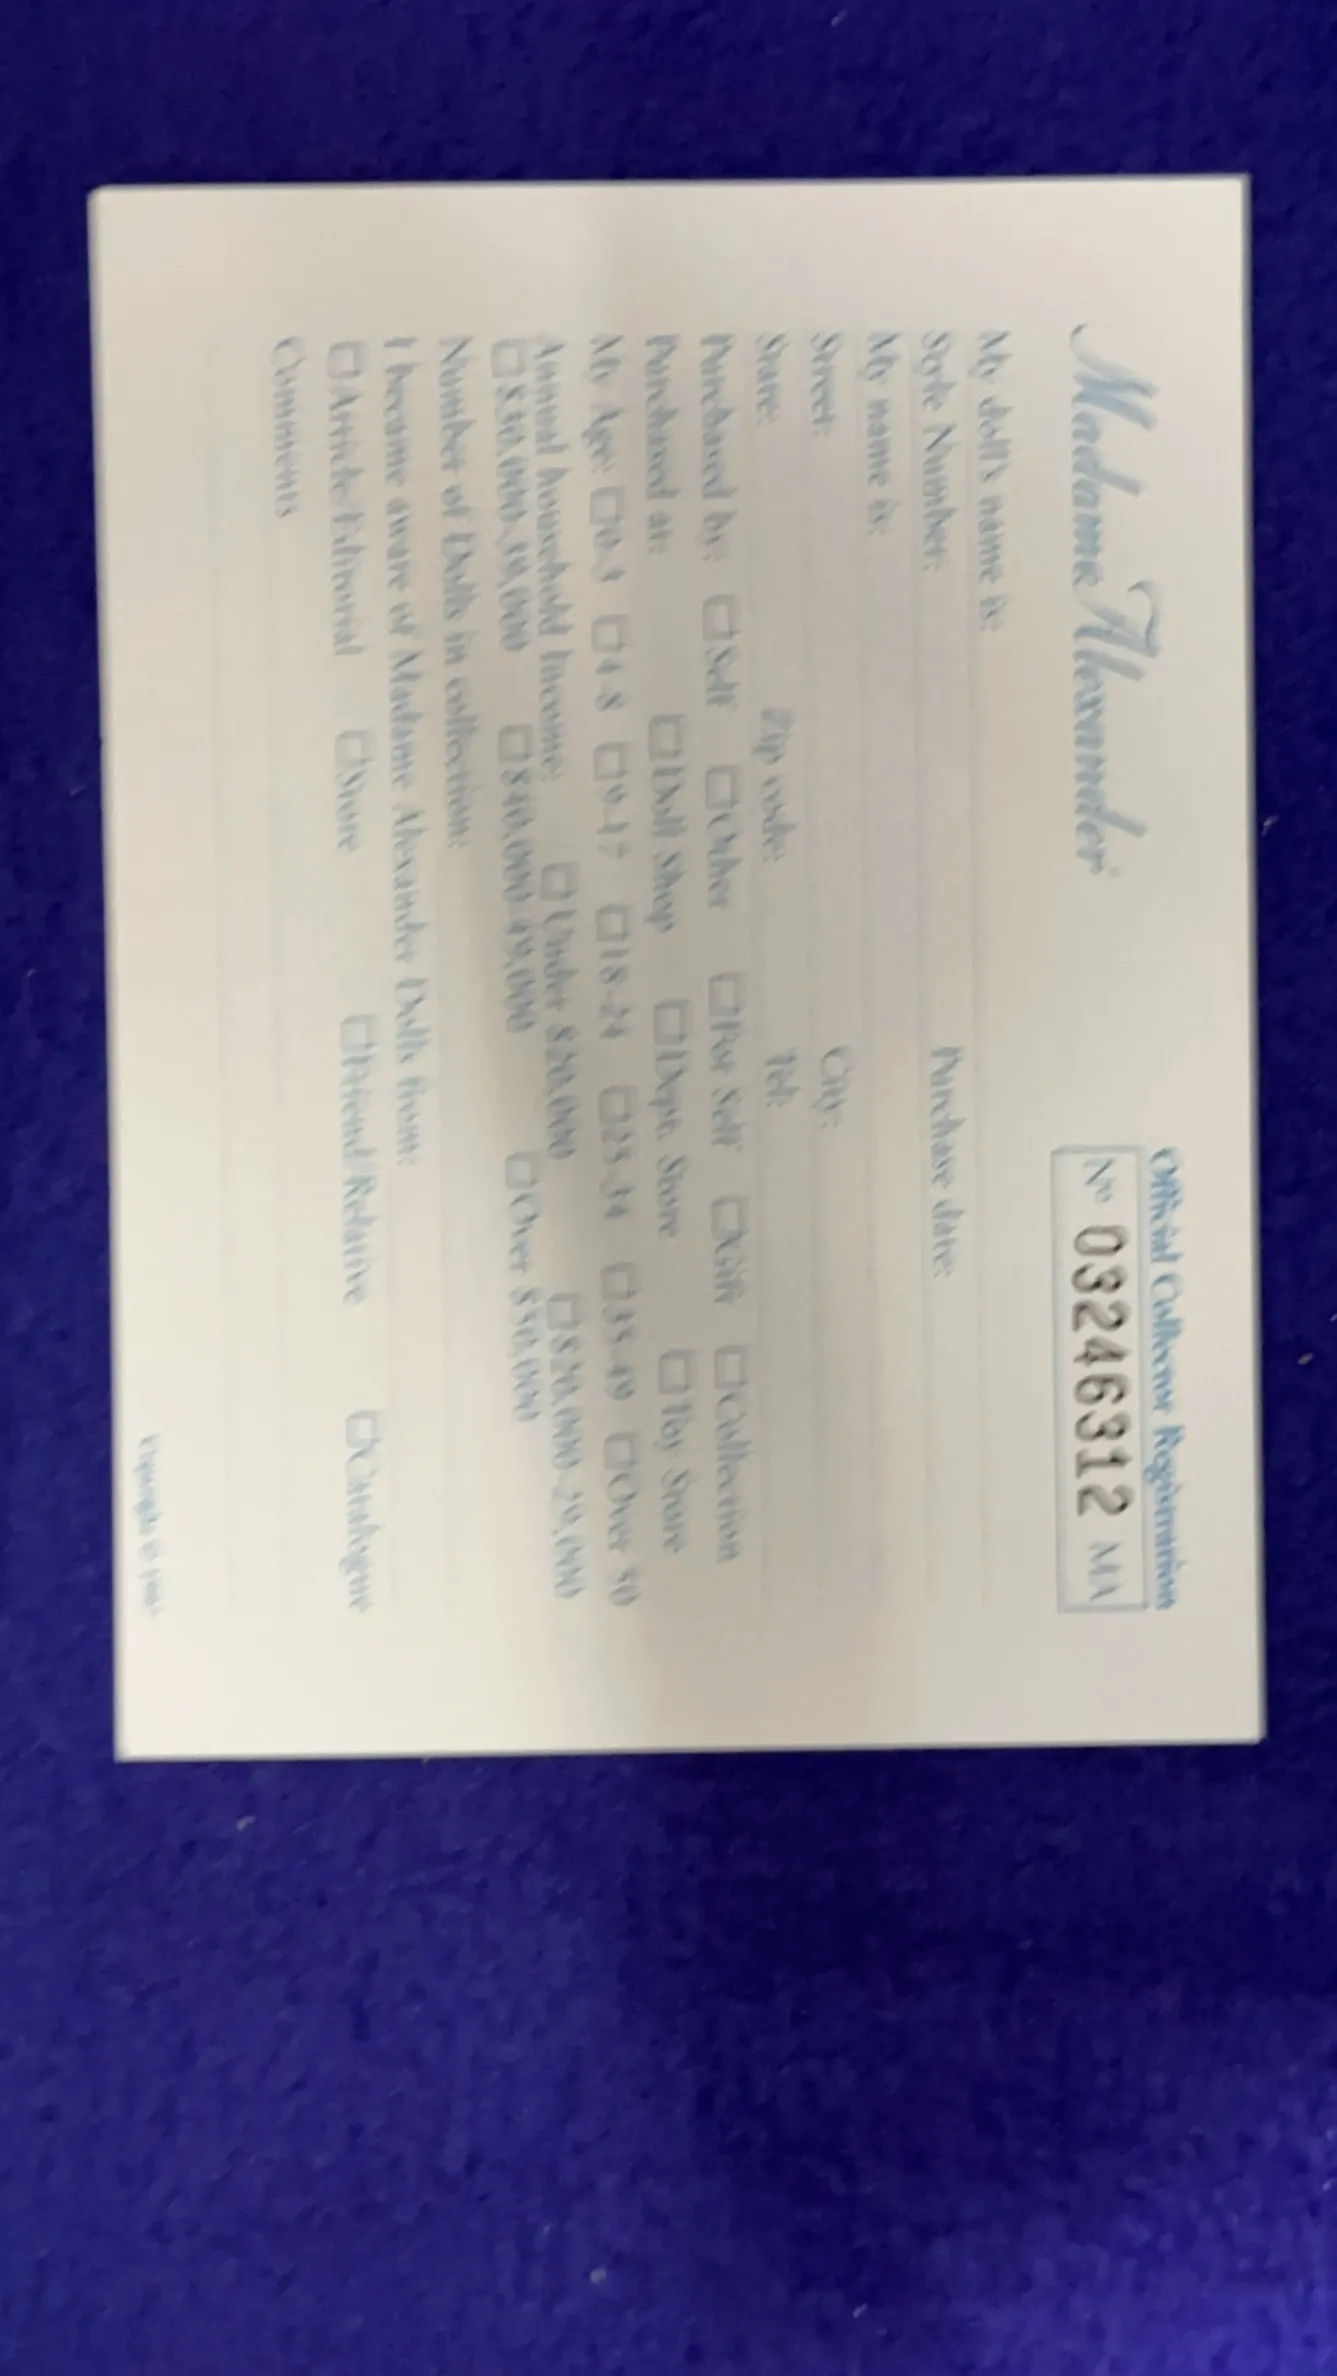 Official Collector Registration
Madame Alexander
Nº 03246312 MA
My doll's name is:
Style Number: Purchase date:
My name is:
Street: City:
State: Zip code: Tel:
Purchased by: □ Self □ Other □ For Self □ Gift □ Collection
Purchased at: □ Doll Shop □ Dept. Store □ Toy Store
My Age: □ 0-3 □ 4-8 □ 9-17 □ 18-24 □ 25-34 □ 35-49 □ Over 50
Annual household Income: □ Under $20,000 □ $20,000-29,000
□ $30,000-39,000 □ $40,000-49,000 □ Over $50,000
Number of Dolls in collection:
I became aware of Madame Alexander Dolls from:
□ Article/Editorial □ Store □ Friend/Relative □ Catalogue
Comments
Copyright ©